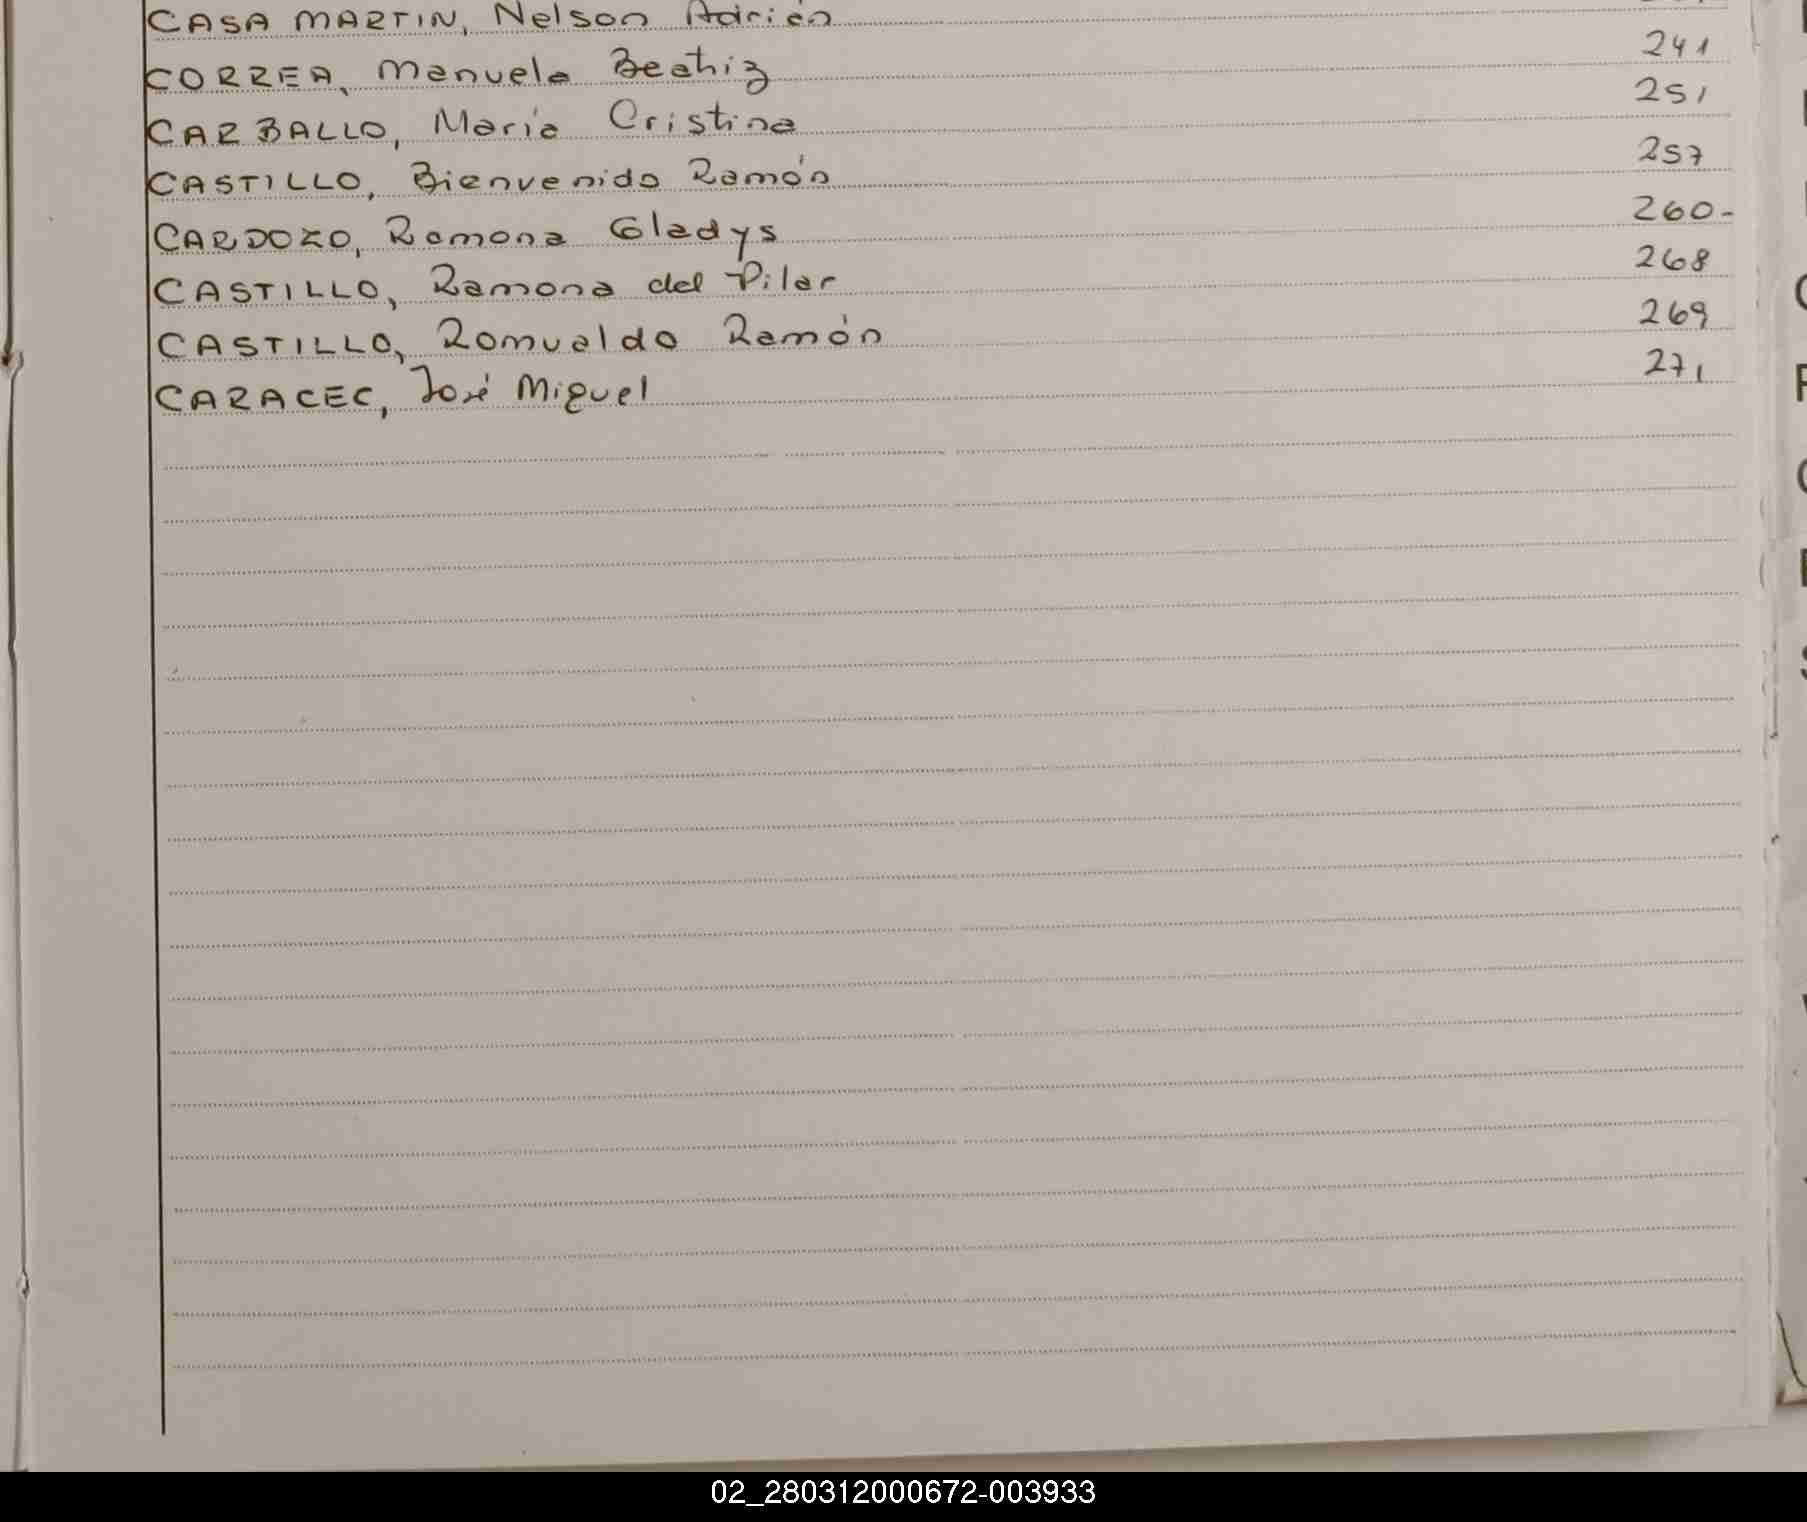 CASA MARTIN, Nelson Adrián
CORREA, Manuela Beatriz 241
CARBALLO, María Cristina 251
CASTILLO, Bienvenido Ramón 257
CARDOZO, Ramona Gladys 260-
CASTILLO, Ramona del Pilar 268
CASTILLO, Romualdo Ramón 269
CARACEC, José Miguel 271
02_280312000672-003933